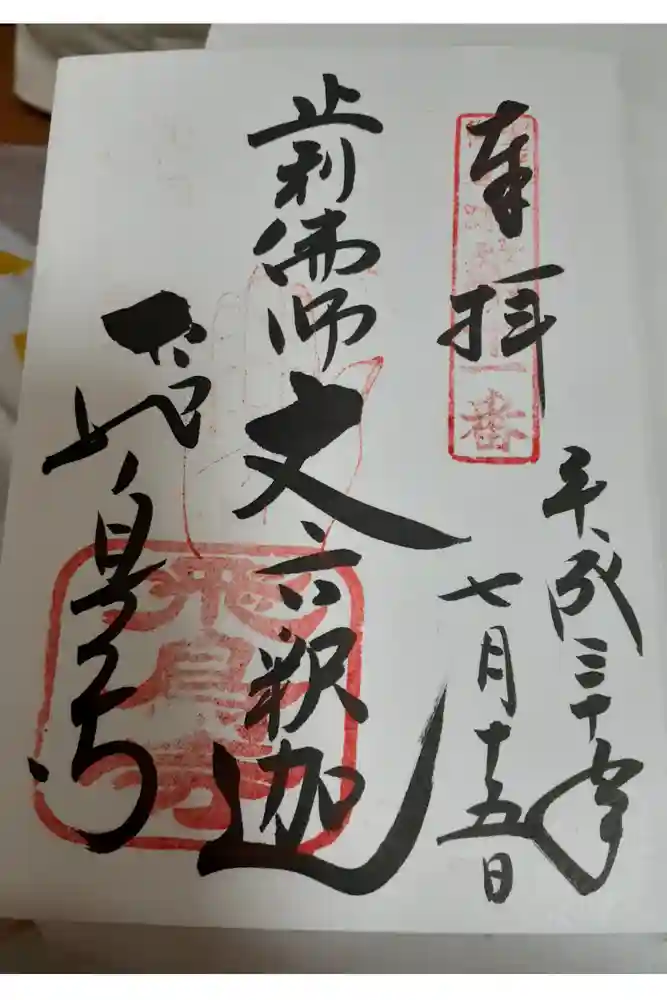 奉拝
番
平成三十年
七月十五日
止利佛師
丈六釈迦
飛鳥寺
飛鳥寺